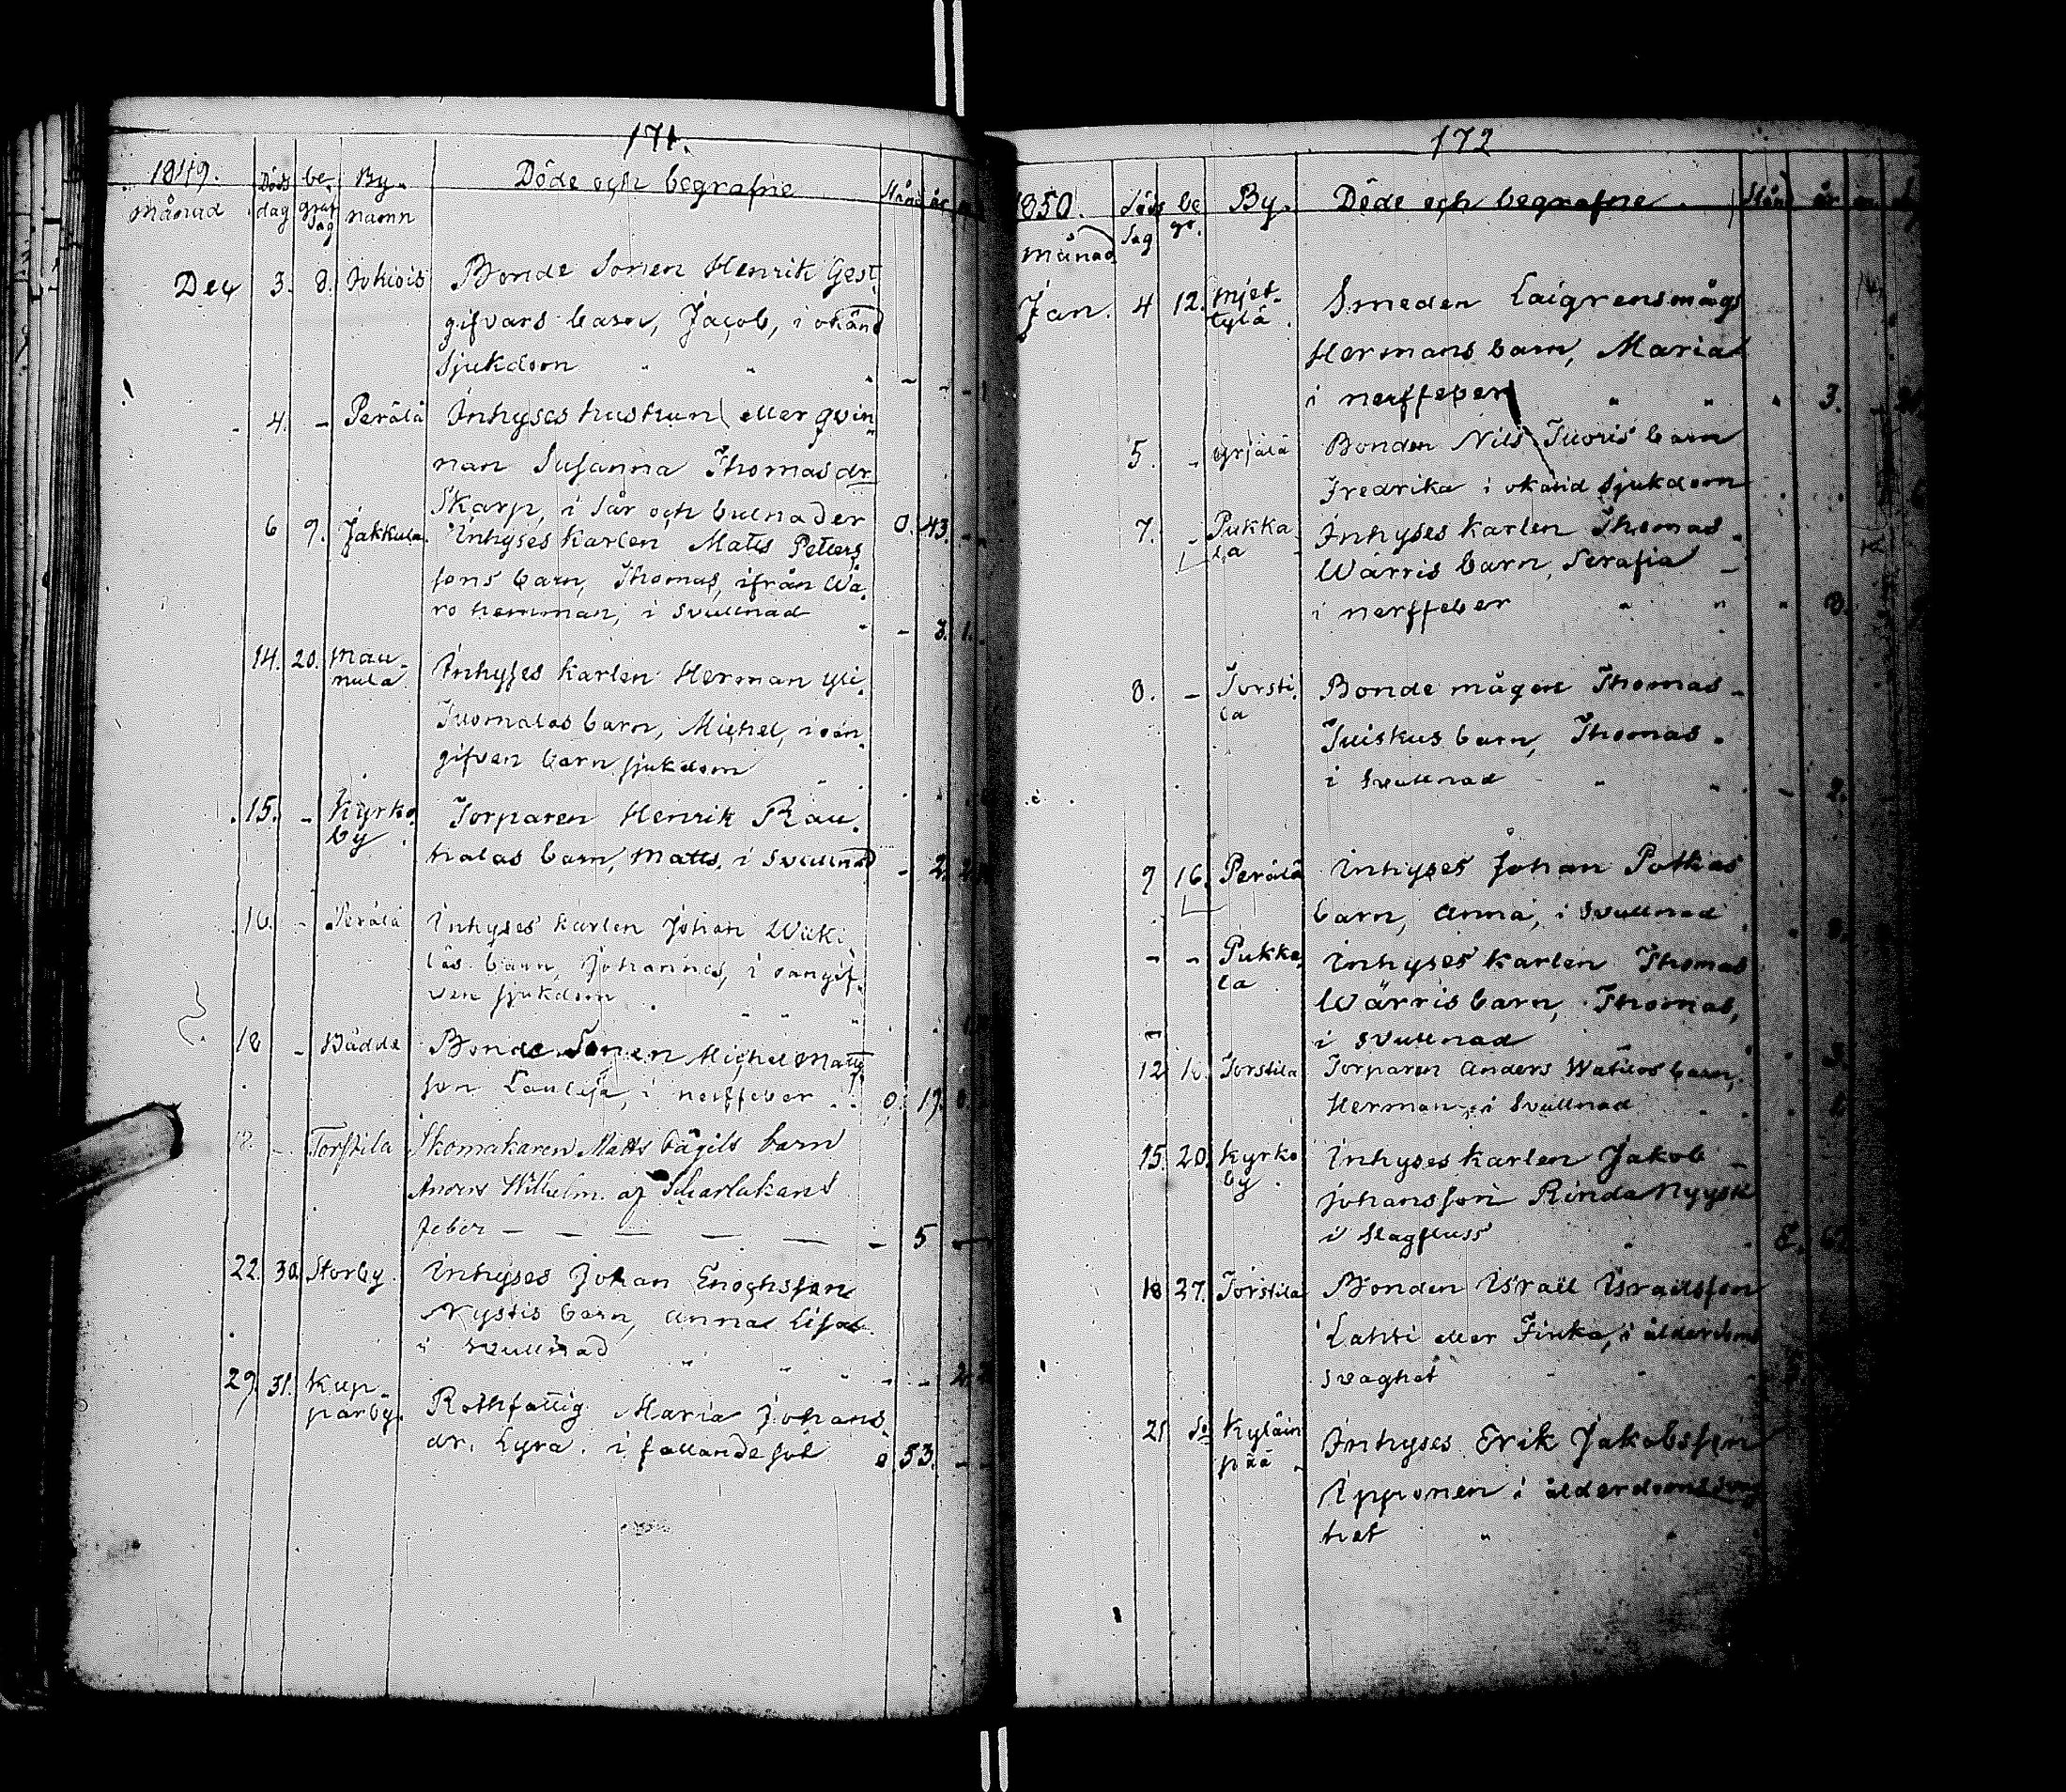 171.
1849. Döds be- By- Döde och begrafne Stånd år
månad dag graf dag namn
Dec 3. 8. Jokiois Bonde Sonen Henrik Gest
gifvars barn, Jacob, i okänd
Sjukdom " " " - - -
4. - Perälä Inhyses hustrun eller qvin
nan Susanna Thomas dr
Skarp, i Sår och bulnader 0. 43. - -
6 9. Jakkula. Inhyses karlen Matts Petters
sons barn, Thomas, ifrån Wa
ro hemman, i Svullnad " - 3. 1.
14. 20. Mau- Inhyses karlen Herman Yli
nula Tuomalas barn, Michel, i oan
gifven barn sjukdom "
15. - Kyrko Torparen Henrik Rau
by halas barn, Matts, i Svullnad - 2. 2.
16. - Perälä Inhyses karlen Johan
läs barn, Johannes, i oangif
ven sjukdom " " "
18 - Bonde Sonen Michel Matts
son i nerffeber 0. 19.
18. - Torstila Skomakaren Matts Bägils barn
Anders Wilhelm af Scharlakans
feber - - - - - - 5 -
22. 30. Storby. Inhyses Johan Enochsson
Nystis barn, Anna Lisa
i Svullnad " " " - - 2.
29. 31. Kup- Rothfattig Maria Johans
parby. dr. Lyra, i fallande sot 0 53. - -
172
1850. Döds be By. Döde och begrafne. Stånd år m
månad dag gr.
Jan. 4 12. Mjet- Smeden Laigrens mågs
tylä Hermans barn, Maria
i nerffeber " " " 3.
5. - Yrjälä Bonden Nils Tuoris barn
Fredrika i okänd Sjukdom
7. - Pukka Inhyses karlen Thomas
la Wärris barn, Serafia -
i nerffeber " " " 3.
8. - Torsti Bonde mågen Thomas -
la Tuiskus barn, Thomas
i Svullnad " " - 2.
9 16. Perälä Inhyses Johan Potkas
barn, Anna, i Svullnad
- - Pukka Inhyses karlen Thomas
la Wärris barn, Thomas,
i Svullnad 3.
12 18. Torstila Torparen Anders barn,
Herman, i Svullnad
15. 20. Kyrko Inhyses karlen Jakob -
by Johansson Rinda Nygsk
i Slagfluss
18 27. Torstila Bonden Israël Israëlsson
Lahti eller Finka, i ålderdoms
svaghet
21 do Kyläin Inhyses Erik Jakobsson
pää Ipponen i
het " "